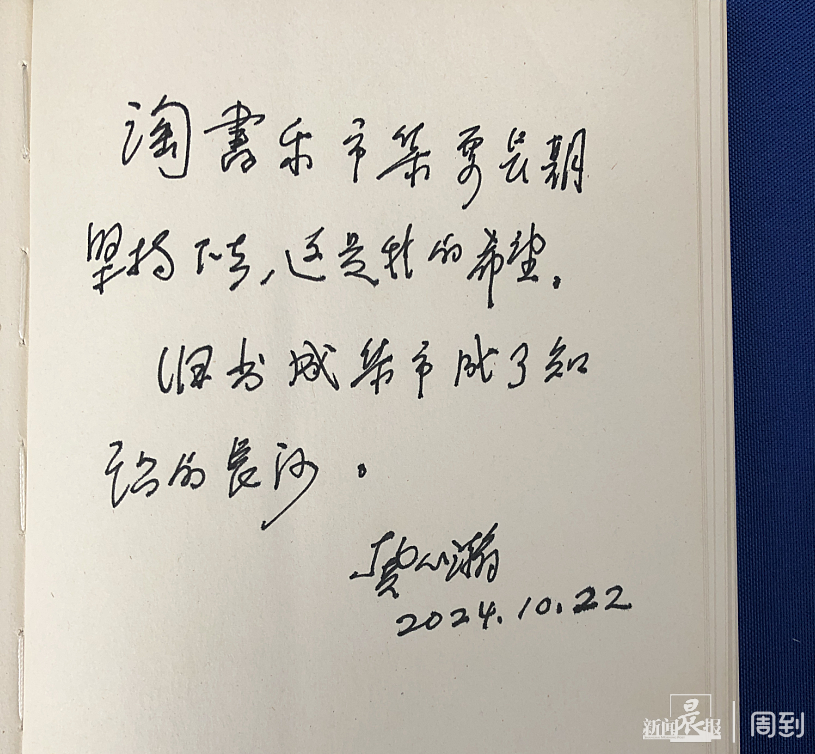 淘書乐市集要长期
坚持下去,这是我的希望。
旧书成集市成了知
识的长河。
龚心瀚
2024.10.22
新闻晨报 | 周到